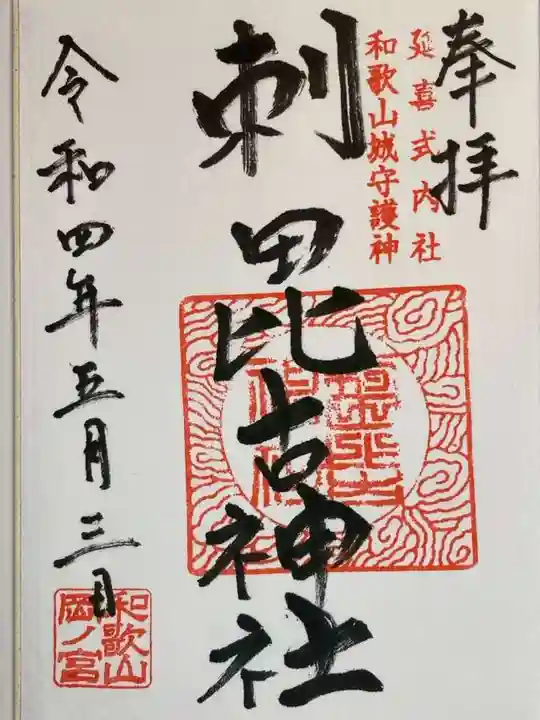 奉拝
延喜式内社
和歌山城守護神
刺田比古神社
令和四年五月三日
和歌山
岡ノ宮